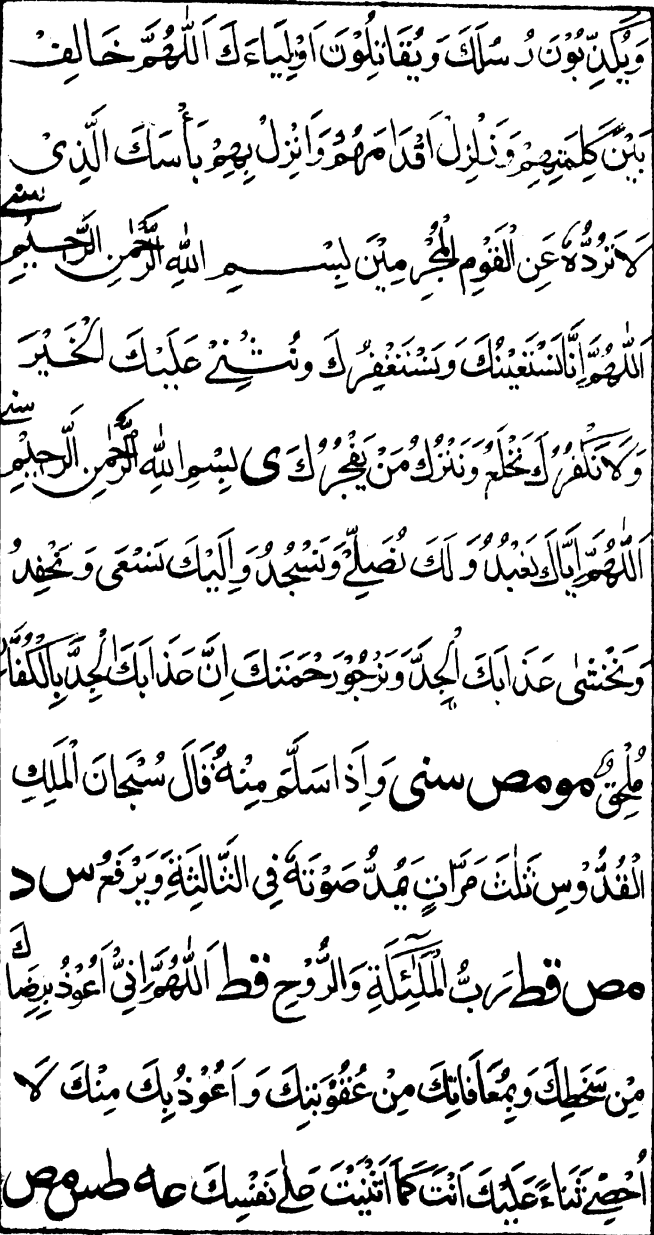 وَيُكَذِّبُوْنَ رُسُلَكَ وَيُقَاتِلُوْنَ اَوْلِيَاءَكَ اَللّٰهُمَّ خَالِفْ
بَيْنَ كَلِمَتِهِمْ وَزَلْزِلْ اَقْدَامَهُمْ وَاَنْزِلْ بِهِمْ بَأْسَكَ الَّذِىْ
لَا تَرُدُّهٗ عَنِ الْقَوْمِ الْمُجْرِمِيْنَ بِسْمِ اللّٰهِ الرَّحْمٰنِ الرَّحِيْمِ سنے
اَللّٰهُمَّ اِنَّا نَسْتَعِيْنُكَ وَنَسْتَغْفِرُكَ وَنُثْنِىْ عَلَيْكَ الْخَيْرَ
وَلَا نَكْفُرُكَ نَخْلَعُ وَنَتْرُكُ مَنْ يَفْجُرُكَ ى بِسْمِ اللّٰهِ الرَّحْمٰنِ الرَّحِيْمِ سنے
اَللّٰهُمَّ اِيَّاكَ نَعْبُدُ وَلَكَ نُصَلِّىْ وَنَسْجُدُ وَاِلَيْكَ نَسْعٰى وَنَحْفِدُ
وَنَخْشٰى عَذَابَكَ الْجِدَّ وَنَرْجُوْ رَحْمَتَكَ اِنَّ عَذَابَكَ الْجِدَّ بِالْكُفَّارِ
مُلْحِقٌ مومص سنى وَاِذَا سَلَّمَ مِنْهُ قَالَ سُبْحَانَ الْمَلِكِ
الْقُدُّوْسِ ثَلٰثَ مَرَّاتٍ يَمُدُّ صَوْتَهٗ فِى الثَّالِثَةِ وَيَرْفَعُ س د
مص قط رَبُّ الْمَلٰٓئِكَةِ وَالرُّوْحِ قط اَللّٰهُمَّ اِنِّىْ اَعُوْذُ بِرِضَاكَ
مِنْ سَخَطِكَ وَبِمُعَافَاتِكَ مِنْ عُقُوْبَتِكَ وَاَعُوْذُ بِكَ مِنْكَ لَا
اُحْصِىْ ثَنَاءً عَلَيْكَ اَنْتَ كَمَا اَثْنَيْتَ عَلٰى نَفْسِكَ عه طس مص